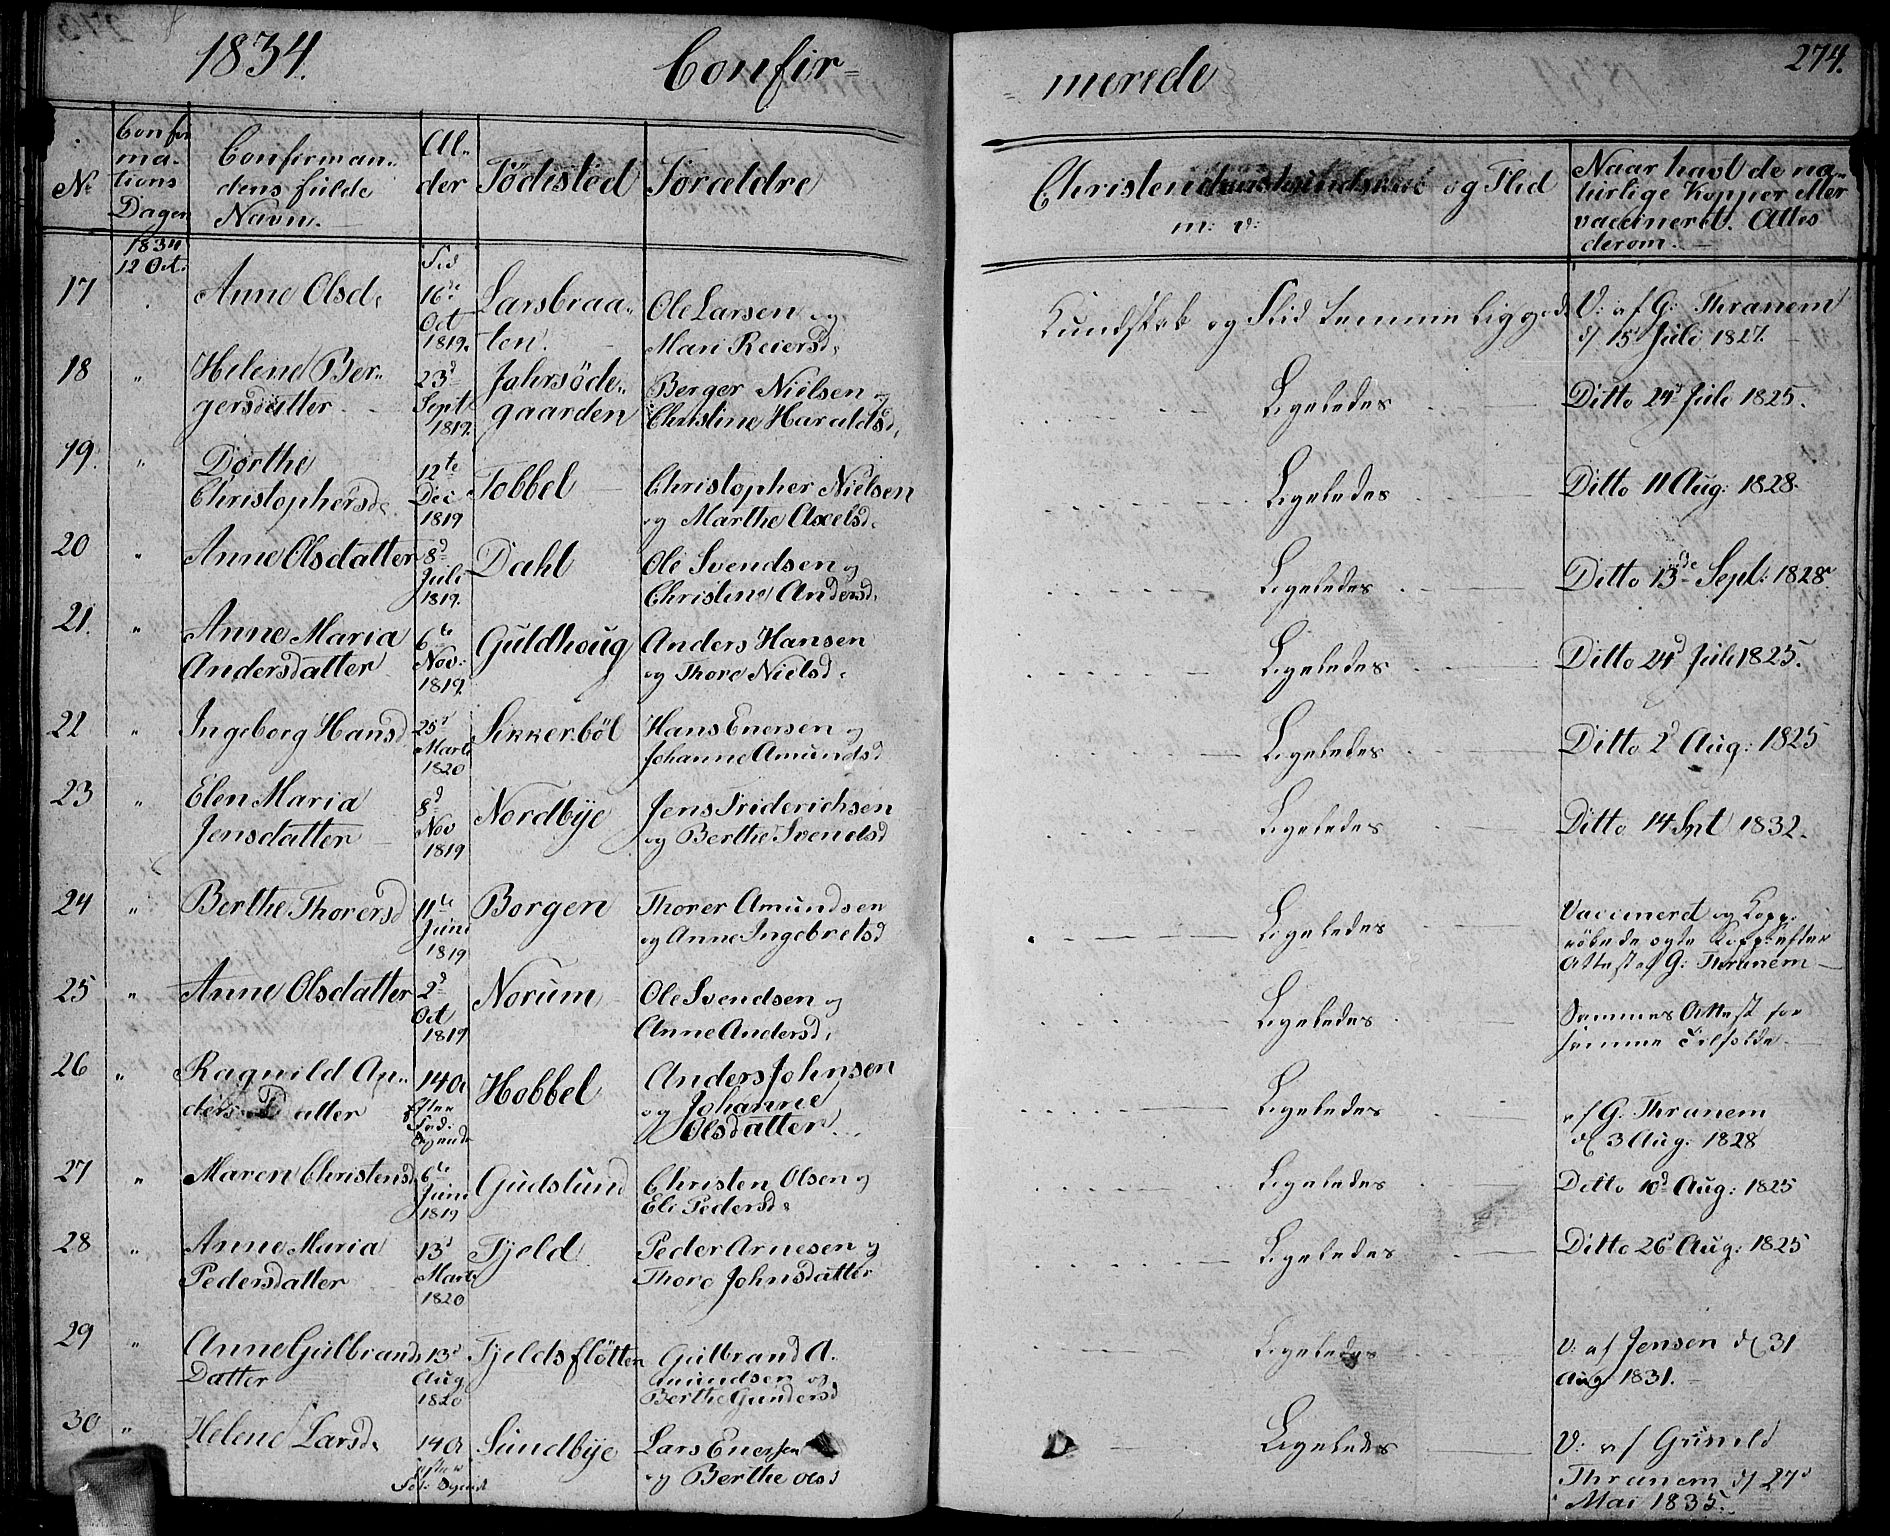 1834. Confir=
= merede 274.
No
Confir
ma-
tions
Dagen
Confirman-
dens fulde
Navn.
Al-
der
Födisted
Forældre
Christendoms Kundskab og Flid
m: v:
Naar havt de na-
turlige Kopper eller
vaccineret. Attes
derom.
1834
12 Oct.
17 Anne Olsd. Fød 16de Oct 1819. Larsbraa-
ten. Ole Larsen og
Mari Reiersd. Kundskab og Flid temmelig god V: af G: Thranem
d/ 15 Juli 1827.
18 " Helene Ber-
gersdatter 23d Sept 1819. Jahrsöde-
gaarden Berger Nielsen og
Christine Haraldsd. Ligeledes Ditto 24d Juli 1825.
19. " Dorthe
Christophersd. 12te Dec 1819 Tobbel Christopher Nielsen
og Marthe Axelsd. Ligeledes Ditto 11 Aug: 1828.
20 " Anne Olsdatter 8d Juli 1819. Dahl Ole Svendsen og
Christine Andersd. Ligeledes Ditto 13de Sept: 1828
21. " Anne Maria
Andersdatter 6te Nov: 1819. Guldhoug Anders Hansen
og Thore Nielsd. Ligeledes Ditto 24d Juli 1825.
22 " Ingeborg Hansd 25d Marts 1820 Sikkerböl Hans Enersen og
Johanne Amundsd Ligeledes Ditto 2d Aug: 1825
23 " Elen Maria
Jensdatter 8d Nov 1819 Nordbye Jens Friderichsen
og Berthe Svendsd Ligeledes Ditto 14 Spt 1832.
24 " Berthe Thorersd 11te Juni 1819 Borgen Thorer Amundsen
og Anne Ingebretsd Ligeledes Vaccineret og Kopp
efter
Attest af G: Thranem
25 " Anne Olsdatter 2d Oct 1819 Norum Ole Svendsen og
Anne Andersd. Ligeledes Sammes Attest for
samme Tilfælde
26 " Ragnild An-
ders Datter 14 Aar efter Hobbel Anders Johnsen
og Johanne
Olsdatter Ligeledes af G. Thranem
d/ 3 Aug: 1828
27 " Maren Christensd 6te Juni 1819 Gudslund Christen Olsen og
Eli Pedersd. Ligeledes Ditto 10d Aug: 1825
28 " Anne Maria
Pedersdatter 13d Marts 1820 Fjeld Peder Arnesen og
Thore Johnsdatter Ligeledes Ditto 26d Aug: 1825
29 " Anne Gulbrands
Datter 13d Aug 1820 Fjeldsfløtten Gulbrand A.
mundsen og
Berthe Gundersd Ligeledes V: af Jensen d/ 31
Aug 1831.
30 " Helene Larsd. 14 Aar efter Sundbye Lars Enersen
og Berthe Olsd Ligeledes V: af Gunild
Thranem d/ 27d
Mai 1835.